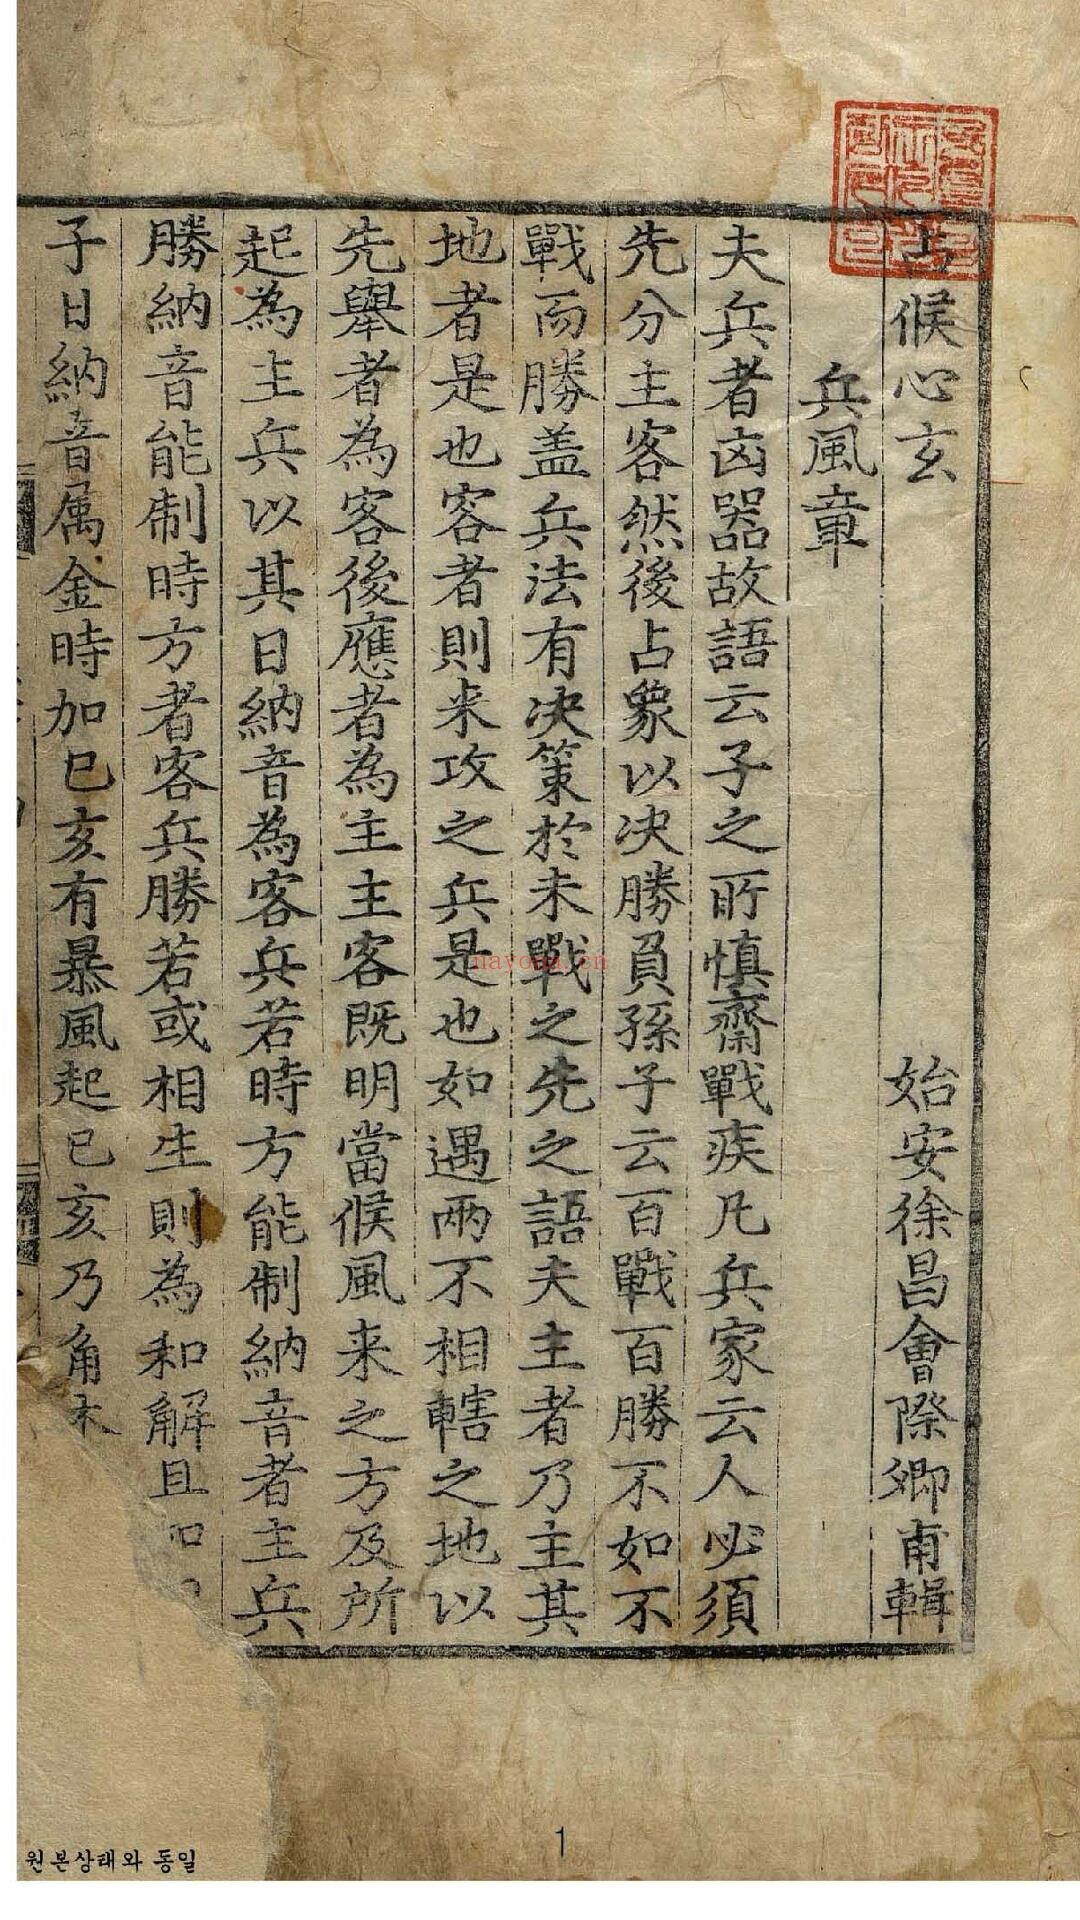 占候心玄 始安徐昌會際卿甫輯
兵風章
夫兵者凶器故語云子之所慎齋戰疾凡兵家云人必須
先分主客然後占象以决勝負孫子云百戰百勝不如不
戰而勝盖兵法有决策於未戰之先之語夫主者乃主其
地者是也客者則来攻之兵是也如遇兩不相轄之地以
先舉者為客後應者為主主客既明當候風来之方及所
起為主兵以其日納音為客兵若時方能制納音者主兵
勝納音能制時方者客兵勝若或相生則為和解且如
子日納音属金時加巳亥有暴風起巳亥乃角木
nayona.cn
1
원본상태와 동일